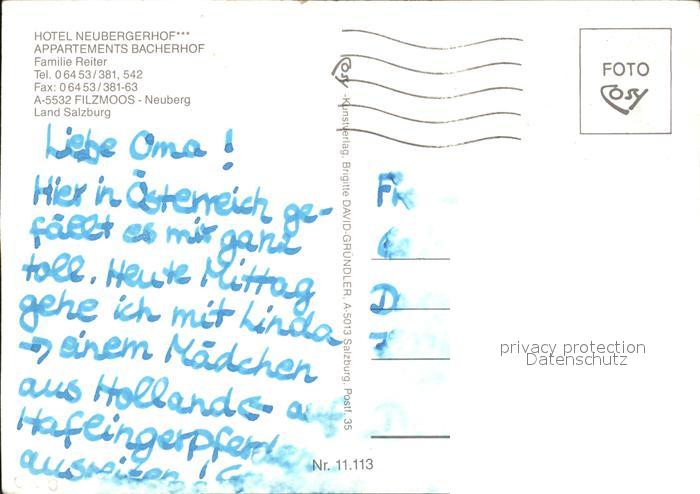 HOTEL NEUBERGERHOF***
APPARTEMENTS BACHERHOF
Familie Reiter
Tel. 0 64 53 / 381, 542
Fax: 0 64 53 / 381-63
A-5532 FILZMOOS - Neuberg
Land Salzburg
Liebe Oma !
Hier in Österreich ge-
fällt es mir ganz
toll. Heute Mittag
gehe ich mit Linda
→ einem Mädchen
aus Holland ←
Haflingerpferden
ausreiten !
Cosy - Kunstverlag, Brigitte DAVID-GRÜNDLER, A-5013 Salzburg, Postf. 35
Nr. 11.113
FOTO
Cosy
privacy protection
Datenschutz